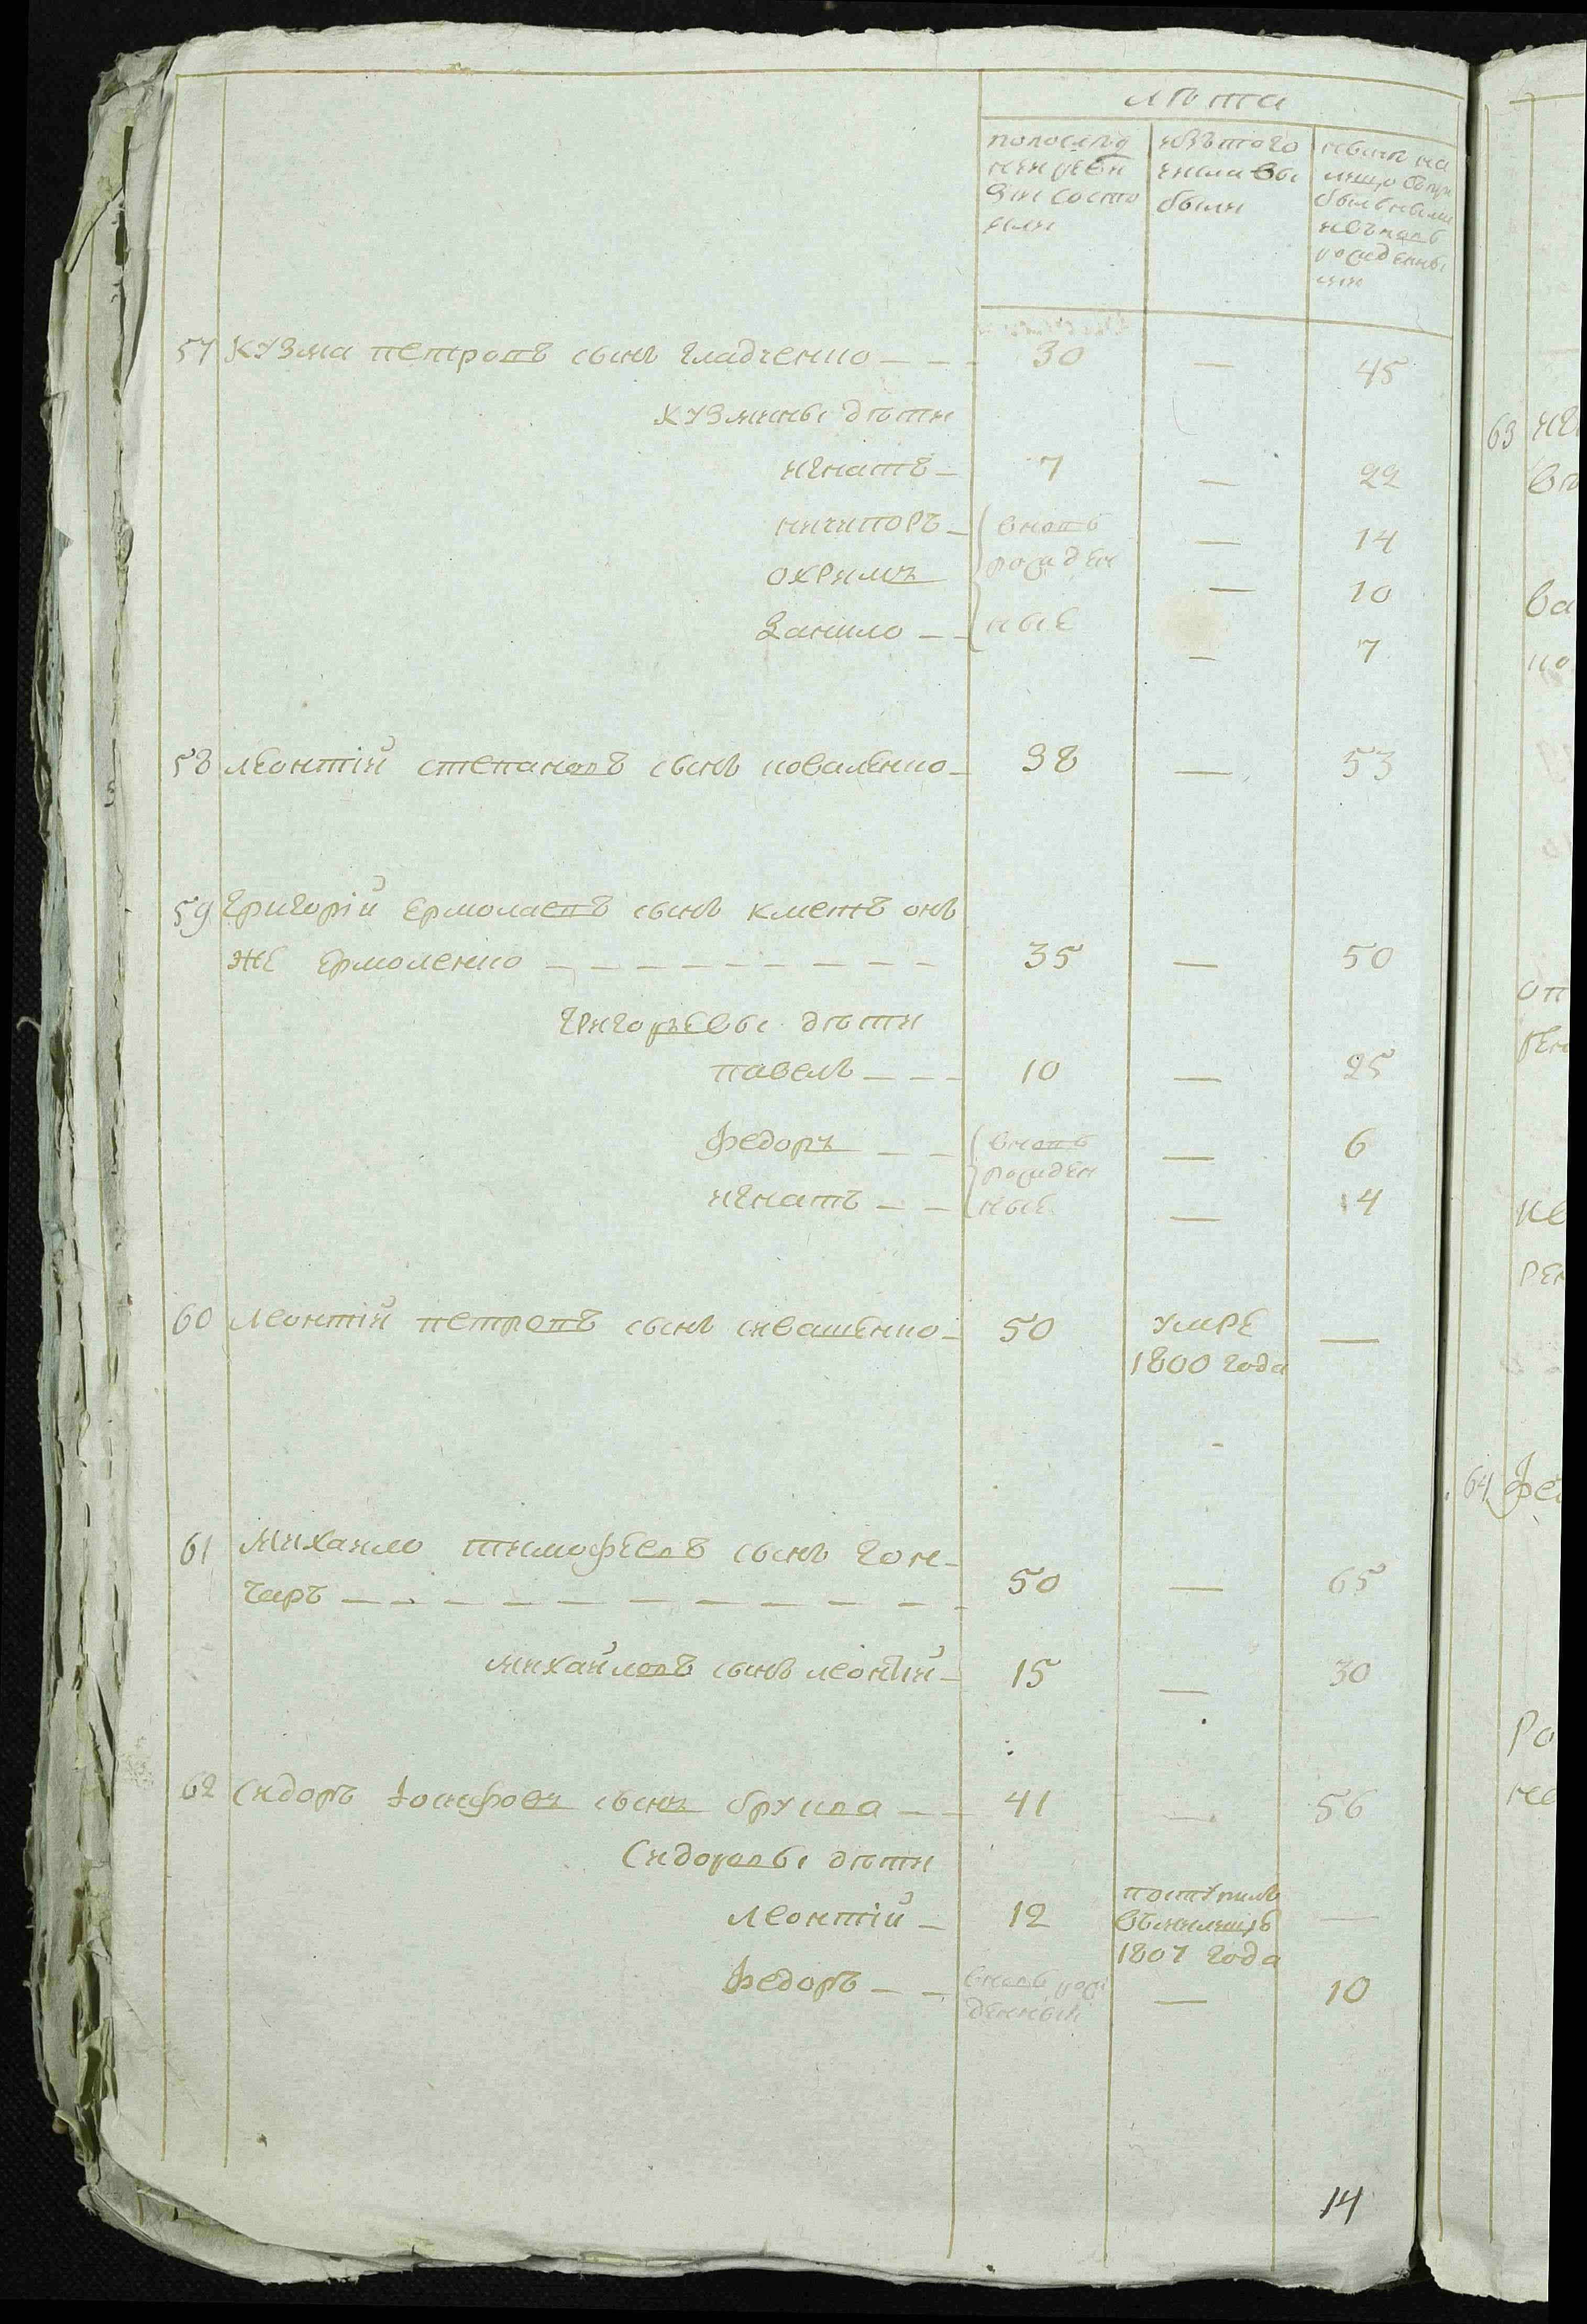 лѣта
попослѣд
ней реви
зіи состо
яли
изътого
числа вы
были
нынѣ на
лицо
рожденны
ми
57 Кузма петровъ сынъ гладченко 30 — 45
Кузмины дѣти
игнатъ 7 — 22
ничипоръ вновь — 14
рожден
охримъ — 10
данило ные — 7
58 леонтій степановъ сынъ коваленко 38 — 53
59 григорій ермолаевъ сынъ кметь онъ
же ермоленко 35 — 50
григорьевы дѣти
павелъ 10 — 25
федоръ вновь — 6
рожден
игнатъ ные — 4
60 леонтій петровъ сынъ ивашенко 50 умре —
1800 года
61 михаило тимофеевъ сынъ гон-
чаръ 50 — 65
михайловъ сынъ леонтій 15 — 30
62 Сидоръ іосифовъ сынъ 41 — 56
Сидоровы дѣти
поступилъ
леонтій 12 —
1807 года
федоръ вновь рож — 10
денный
14
63
64 фе